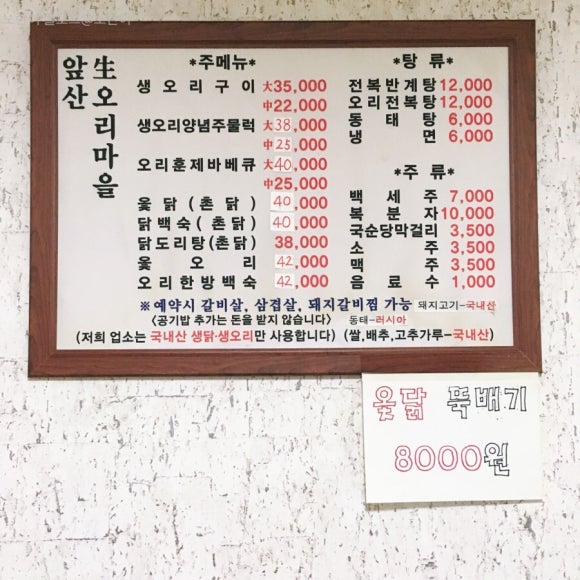 앞산
生오리마을
*주메뉴*
생오리구이 大35,000
中22,000
생오리양념주물럭 大38,000
中25,000
오리훈제바베큐 大40,000
中25,000
옻닭(촌닭) 40,000
닭백숙(촌닭) 40,000
닭도리탕(촌닭) 38,000
옻오리 42,000
오리한방백숙 42,000
*탕류*
전복반계탕 12,000
오리전복탕 12,000
동태탕 6,000
냉면 6,000
*주류*
백세주 7,000
복분자 10,000
국순당막걸리 3,500
소주 3,500
맥주 3,500
음료수 1,000
※예약시 갈비살, 삼겹살, 돼지갈비찜 가능 돼지고기-국내산
<공기밥 추가는 돈을 받지 않습니다> 동태-러시아
(저희 업소는 국내산 생닭·생오리만 사용합니다) (쌀,배추,고추가루-국내산)
옻닭 뚝배기
8000원